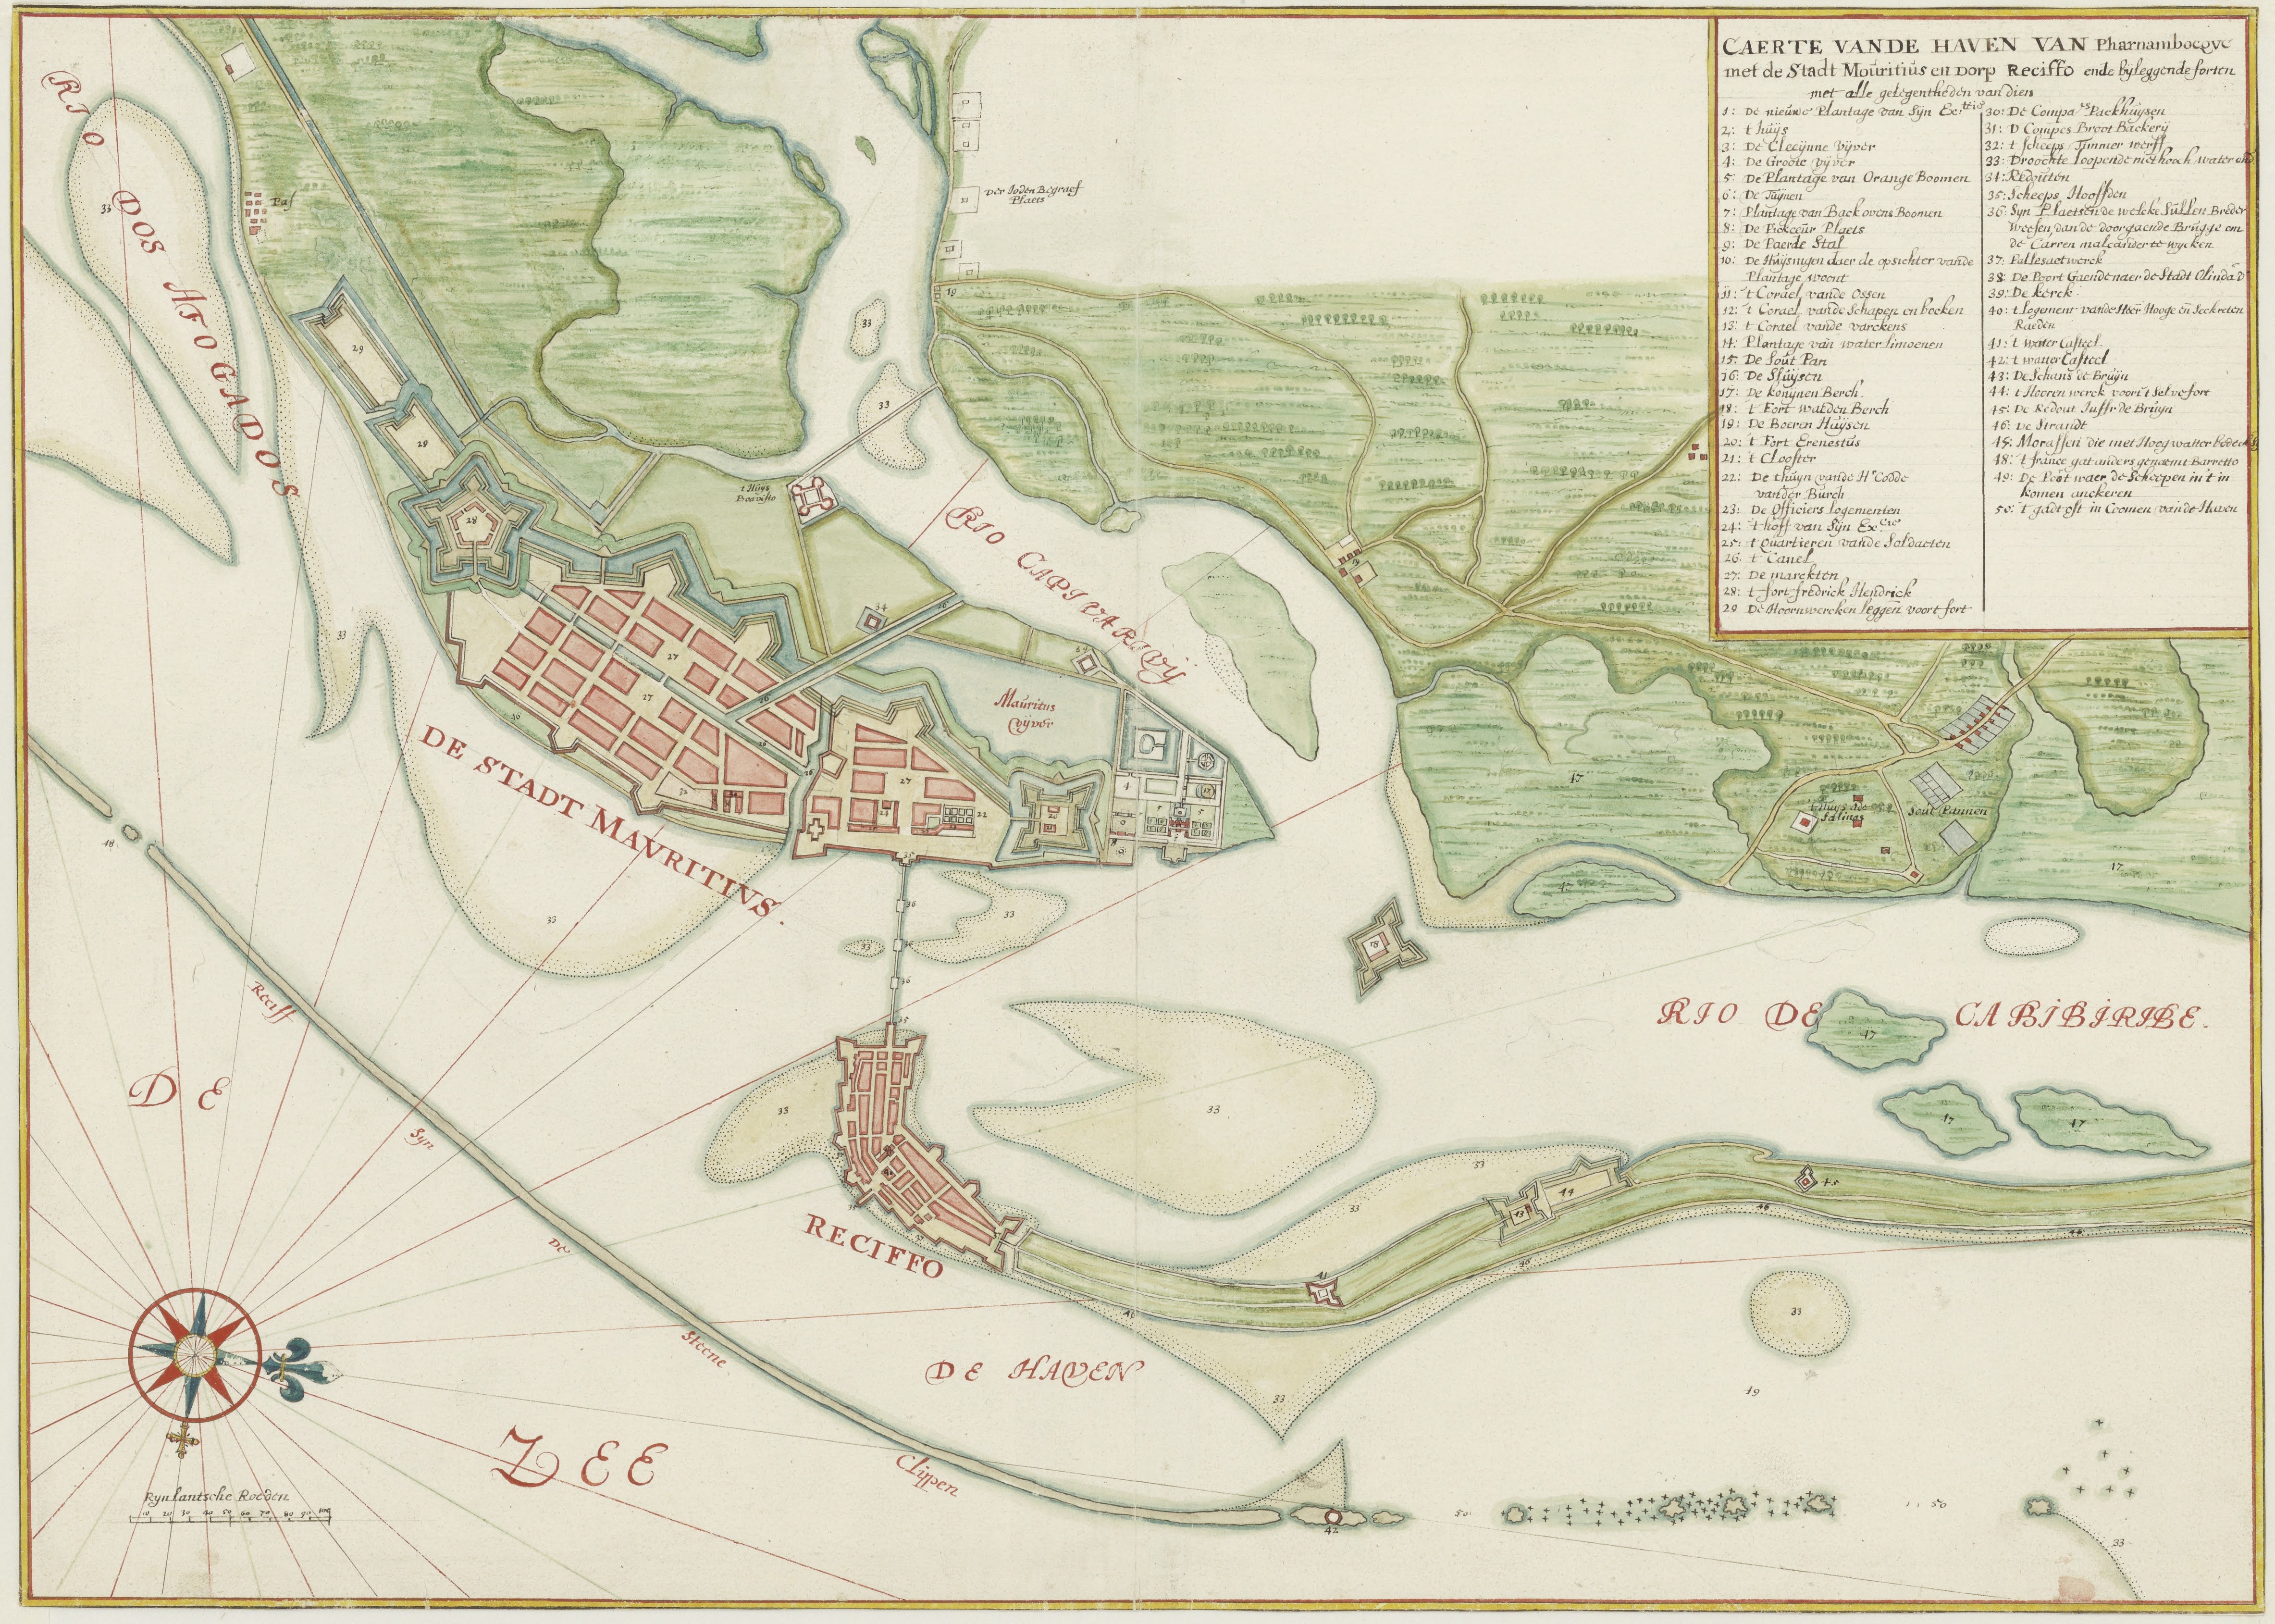 CAERTE VANDE HAVEN VAN Pharnambocqve
met de Stadt Mouritius en Dorp Reciffo ende byleggende forten
met alle gelegentheden van dien
1: De nieuwe Plantage van Syn Ex:ttie
2: t huys
3: De Cleeynne Vyver
4: De Groote Vyver
5: De Plantage van Orange Boomen
6: De Tuynen
7: Plantage van Back ovens Boomen
8: De Pickeur Plaets
9: De Paerde Stal
10: De Huysingen daer de opsichter vande
Plantage woont
11: t Corael vande Ossen
12: t Corael vande Schapen en bocken
13: t Corael vande varckens
14: Plantage van water limoenen
15: De Sout Pan
16: De Sluysen
17: De konynen Berch
18: t Fort waerden Berch
19: De Boeren Huysen
20: t Fort Erenestus
21: t Clooster
22: De thuyn vande Hr Codde
vander Burch
23: De Officiers logementen
24: t hoff van Syn Ex:cie
25: t Quartieren vande Soldaeten
26: t Canel
27: De marckten
28: t fort fredrick Hendrick
29 De Hoornwercken leggen voort fort
30: De Compa es Packhuysen
31: D Compes Broot Backery
32: t scheeps Timmer werff
33: Droochte loopende met hooch water
34: Redouten
35: Scheeps Hooffden
36: Syn Plaetsen de welcke Sullen Breder
Weesen dan de doorgaende Brugge om
de Carren malcander te wycken
37: Pallesaetwerck
38: De Poort Gaende naer de Stadt Olinda
39: De kerck
40: t logement vande Heer Hooge en Seckreten
Raeden
41: t water Casteel
42: t watter Casteel
43: De Schans de Bruyn
44: t Hooren werck voor t Selve fort
45: De Redout Juffr de Bruyn
46: De Strandt
45: Morassen die met Hoog watter
48: t france gat anders genaemt Barretto
49: De Poot waer de Scheepen in t in
komen anckeren
50: t gadt oft in Coomen vande Haven
RIO DOS AFOGADOS
Pas
Der Joden Begraef
Plaets
t Huys
Boavisto
RIO CAPIVARYIJ
Mauritus
Vyver
DE STADT MAVRITIVS.
t Huys de
Salinas
Sout Pannen
RIO DE CABIBIRIBE.
RECIFFO
DE HAVEN
DE
ZEE
Reciff
Syn
De
Steene
Clippen
Rynlantsche Roeden
10 20 30 40 50 60 70 80 90 100